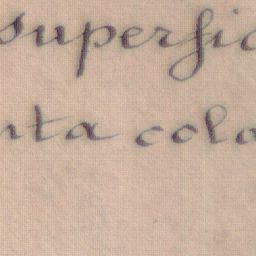 superfic
nta cola